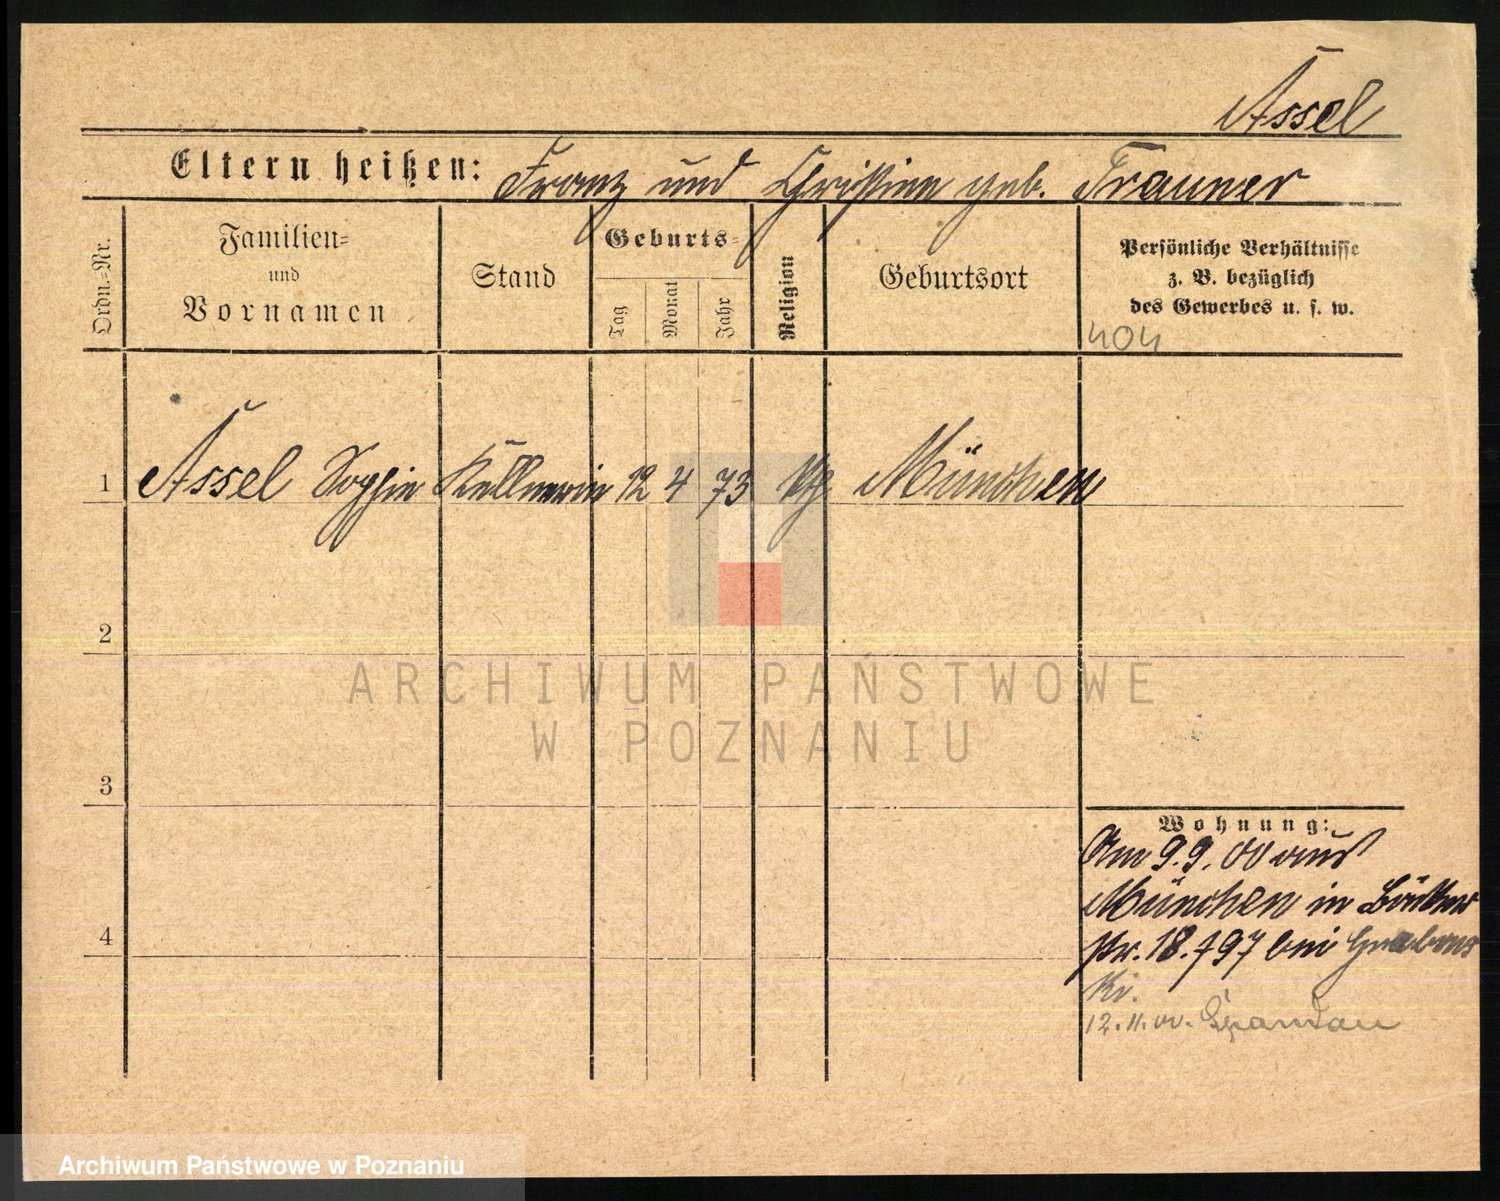 Assel
Eltern heißen: Franz und Christine geb. Trauner
Ordn.-Nr.
Familien-
und
Vornamen
Stand
Geburts-
Tag
Monat
Jahr
Religion
Geburtsort
Persönliche Verhältnisse
z. B. bezüglich
des Gewerbes u. s. w.
404
1 Assel Sophie Kellnerin 12 4 73 kth. München
2
3
4
Wohnung:
Am 9.9.00 aus
München in
18. 797 bei
12.11.00. Spandau
ARCHIWUM PAŃSTWOWE
W POZNANIU
Archiwum Państwowe w Poznaniu